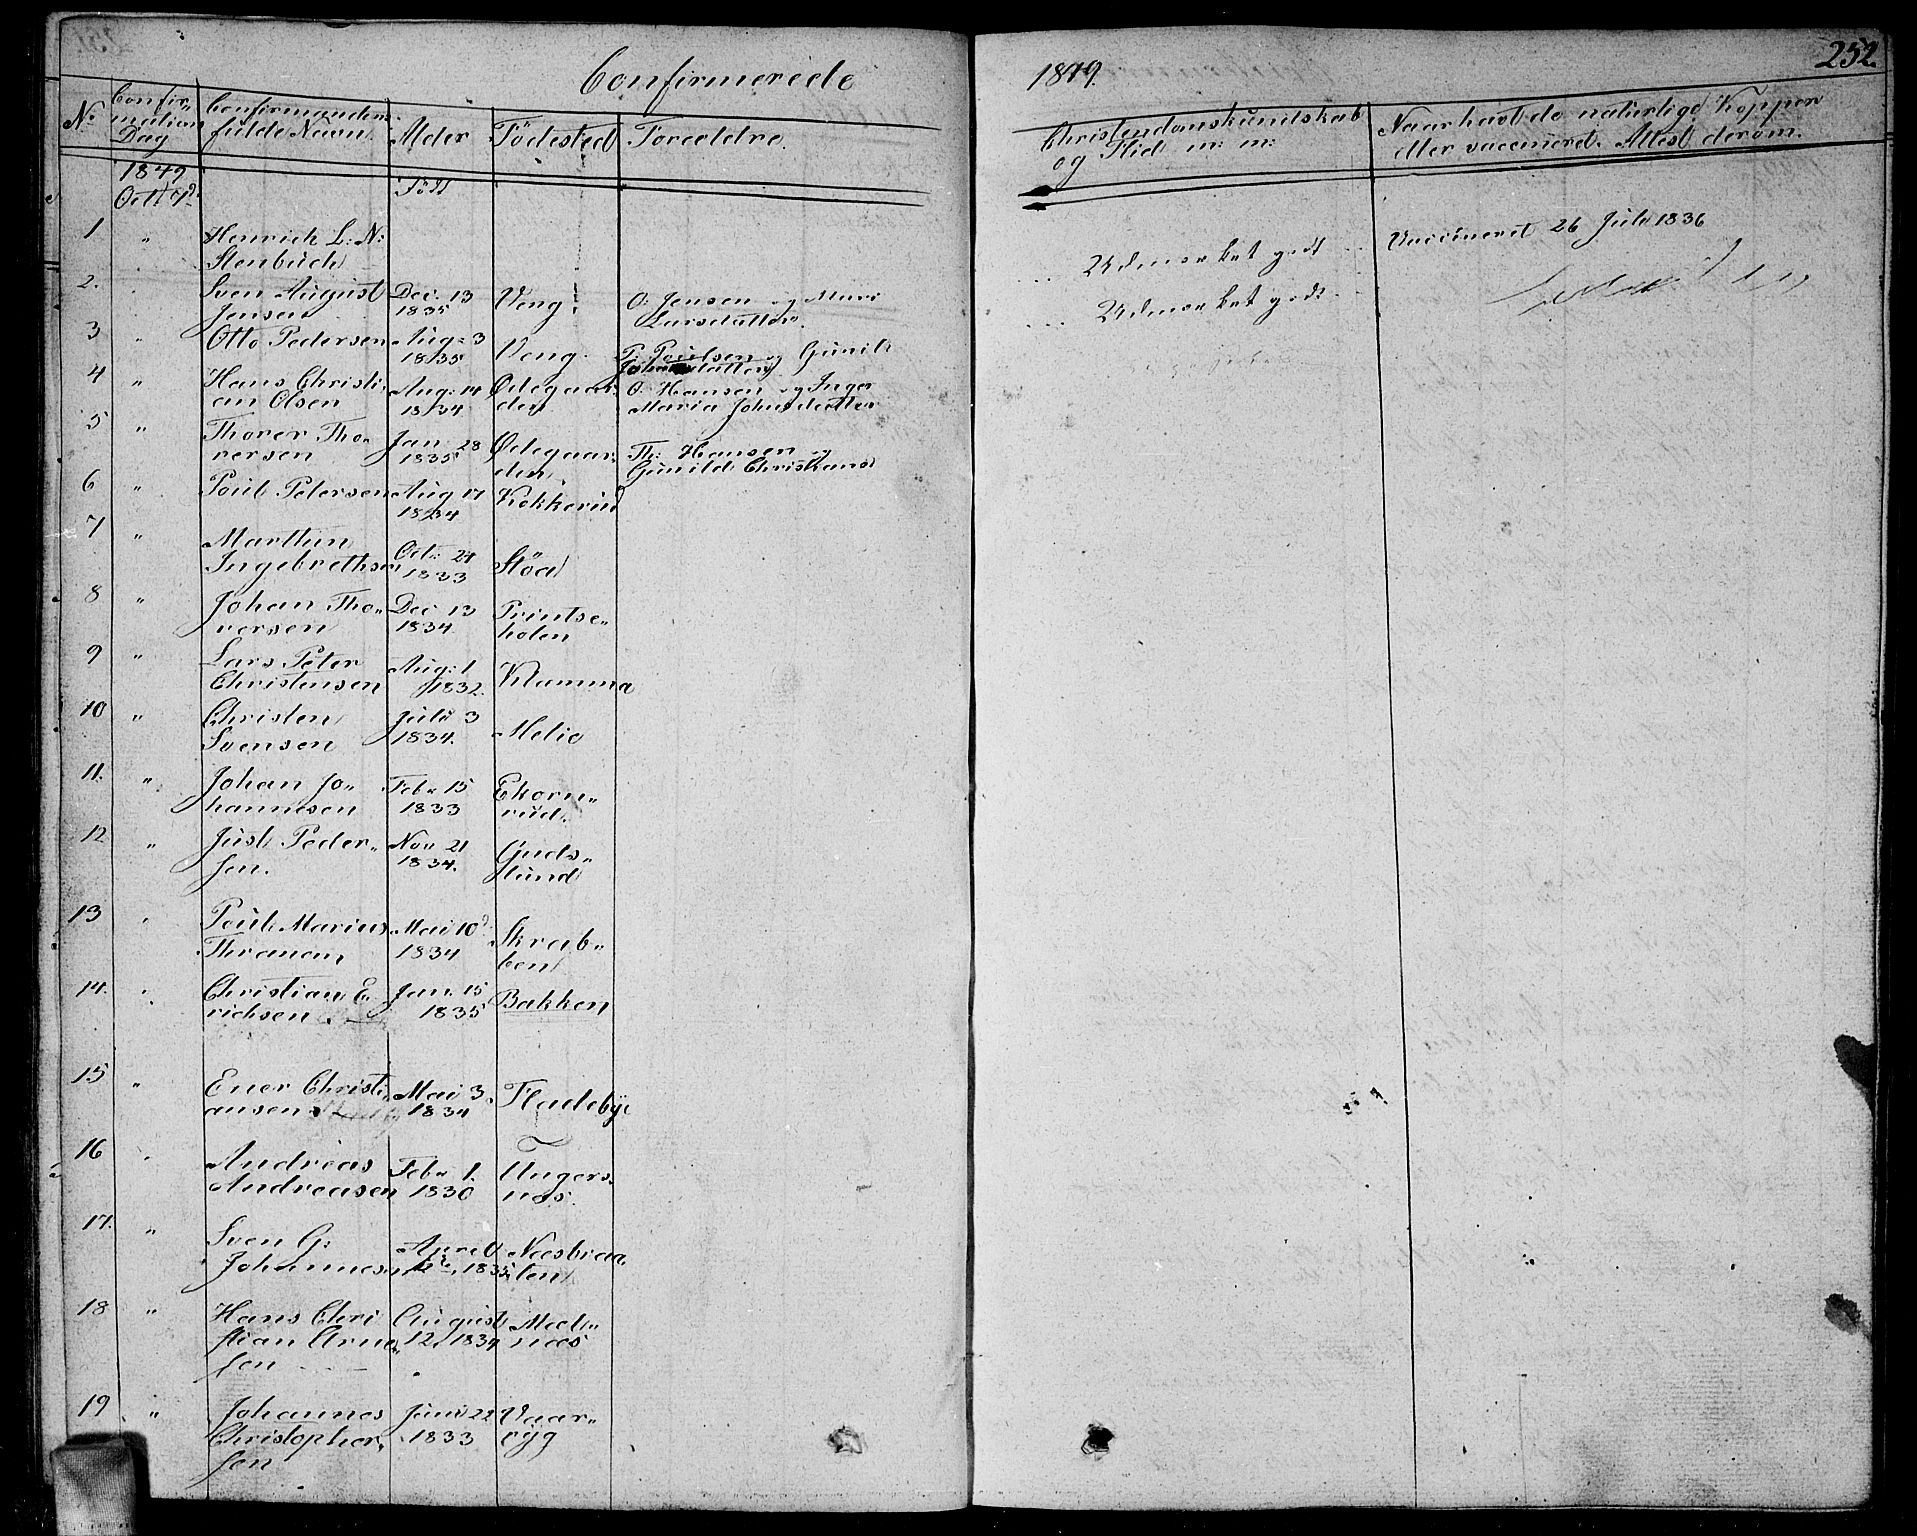 Confirmerede
1849.
252.
No
Confir„
mations
Dag
Confirmandens
fulde Navn
Alder
Födested
Forældre.
Christendomskundskab
og Flid m: m:
Naar havt de naturlige Kopper
eller vaccineret. Attest derom.
1849
Oct 7d
Född
1 " Henrich L: N:
Stenbuch
Udmærket godt
Vaccineret 26 Juli 1836
2. Sven August
Jensen
Dec. 13
1835
Veng
O: Jensen og Mari
Larsdatter
Udmærket godt
3 " Otto Pedersen
Aug: 3
1835
Veng.
P: Poulsen og Gunil
4 " Hans Christi„
an Olsen
Aug: 14
1834
Ødegaar„
den
O: Hansen og Inger
Maria Johnsdatter
5 " Thorer Tho„
rersen
Jan 28
1835
Ødegaar„
den
Th: Hansen og
Gunild Christians
6 " Poul Petersen
Aug 17
1834
Kokkerud
7 " Marthin
Ingebrethsen
Oct: 24
1833
Stöa
8 " Johan Tho„
rersen
Dec 13
1834
Printse„
holen
9 " Lars Peter
Christensen
Aug: 1
1832.
Klamma
10 " Christen
Svensen
Juli 3
1834.
Melio
11. " Johan Jo„
hannesen
Feb 15
1833
Ekorn„
rud.
12 " Just Peder„
sen.
Nov 21
1834.
Guds„
lund
13 " Poul Marius
Thranem
Mai 10d
1834
Skrab„
ben
14. " Christian E„
richsen
Jan. 15
1835
Bakken
15 " Ener Christi„
ansen
Mai 3
1834
Fladebye
16 " Andreas
Andreasen
Feb 1.
1830
Ungers„
næs.
17. " Sven G:
Johannesen
April
1835
Næsbraa„
ten
18 " Hans Chri
stian Arne„
sen
August
12 1834
Mad„
næs
19 " Johannes
Christopher„
sen
Juni 22
1833
Vaar„